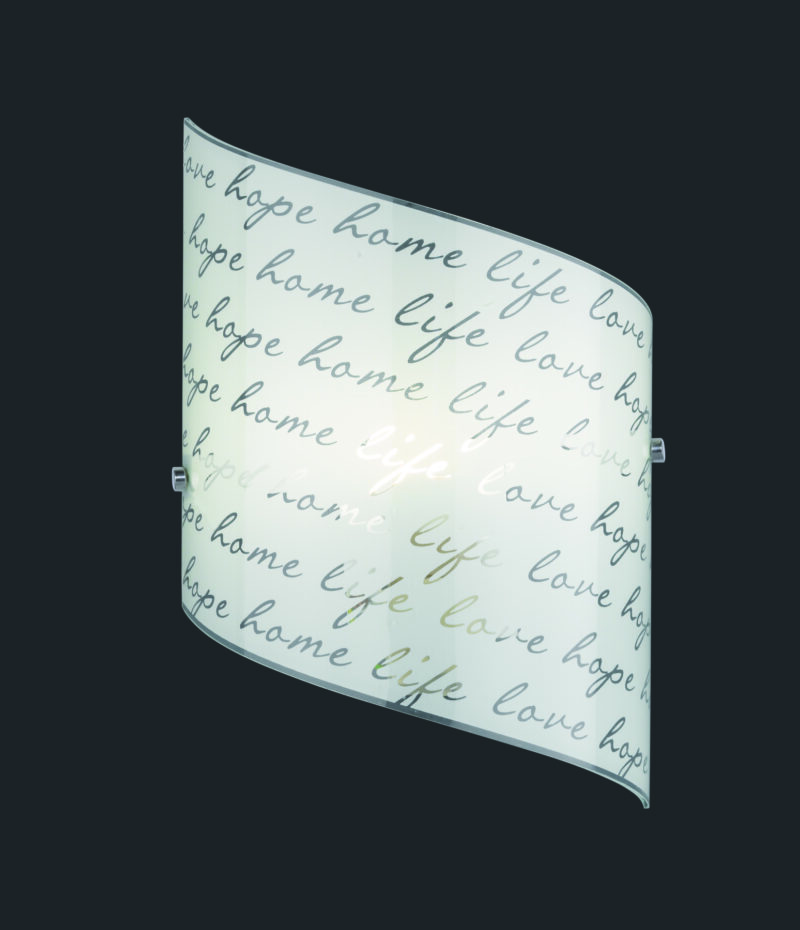 love hope home life love
hope home life love hope
hope home life love
hope home life love hope
hope home life love hope
home life love hope
hope home life love hope